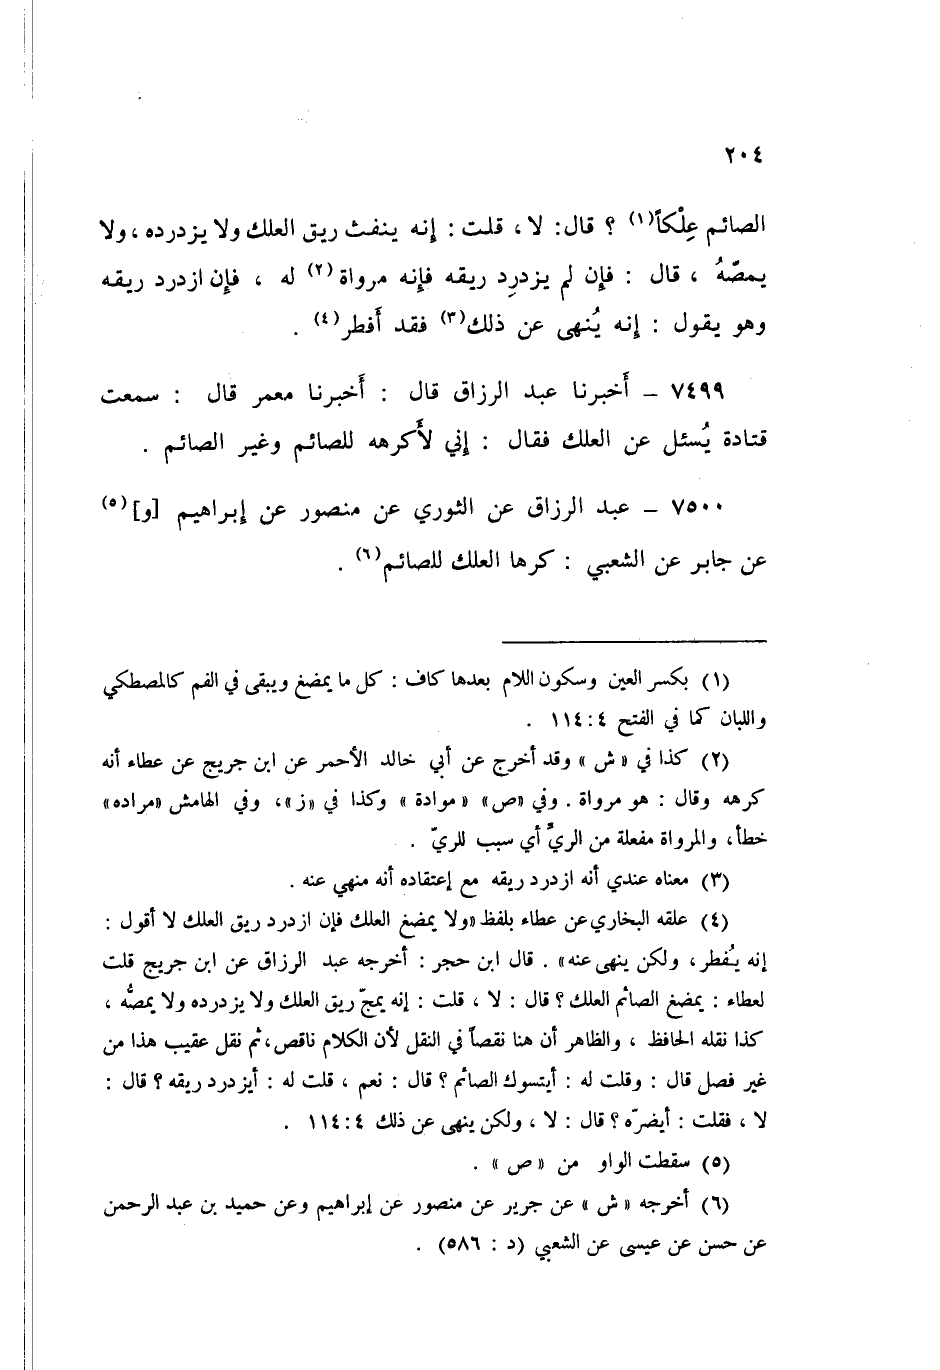 ٢٠٤
الصائم عِلْكاً(١) ؟ قال: لا ، قلت : إنه ينفث ريق العلك ولا يزدرده ، ولا
يمصّهُ ، قال : فإن لم يزدرِد ريقه فإنه مرواة(٢) له ، فإن ازدرد ريقه
وهو يقول : إنه يُنهى عن ذلك(٣) فقد أَفطر(٤) .
٧٤٩٩ – أَخبرنا عبد الرزاق قال : أَخبرنا معمر قال : سمعت
قتادة يُسئل عن العلك فقال : إني لأَكرهه للصائم وغير الصائم .
٧٥٠٠ – عبد الرزاق عن الثوري عن منصور عن إبراهيم [و](٥)
عن جابر عن الشعبي : كرها العلك للصائم(٦) .
(١) بكسر العين وسكون اللام بعدها كاف : كل ما يمضغ ويبقى في الفم كالمصطكي
واللبان كما في الفتح ٤ : ١١٤ .
(٢) كذا في « ش » وقد أخرج عن أبي خالد الأحمر عن ابن جريج عن عطاء أنه
كرهه وقال : هو مرواة . وفي «ص» « موادة » وكذا في «ز»، وفي الهامش «مراده»
خطأ، والمرواة مفعلة من الريّ أي سبب للريّ .
(٣) معناه عندي أنه ازدرد ريقه مع إعتقاده أنه منهي عنه .
(٤) علقه البخاري عن عطاء بلفظ «ولا يمضغ العلك فإن ازدرد ريق العلك لا أقول :
إنه يُفطر، ولكن ينهى عنه» . قال ابن حجر : أخرجه عبد الرزاق عن ابن جريج قلت
لعطاء : يمضغ الصائم العلك ؟ قال : لا ، قلت : إنه يمجّ ريق العلك ولا يزدرده ولا يمصُّه ،
كذا نقله الحافظ ، والظاهر أن هنا نقصاً في النقل لأن الكلام ناقص، ثم نقل عقيب هذا من
غير فصل قال : وقلت له : أيتسوك الصائم ؟ قال : نعم ، قلت له : أيزدرد ريقه ؟ قال :
لا ، فقلت : أيضرّه ؟ قال : لا ، ولكن ينهى عن ذلك ٤ : ١١٤ .
(٥) سقطت الواو من « ص » .
(٦) أخرجه « ش » عن جرير عن منصور عن إبراهيم وعن حميد بن عبد الرحمن
عن حسن عن عيسى عن الشعبي (د : ٥٨٦) .